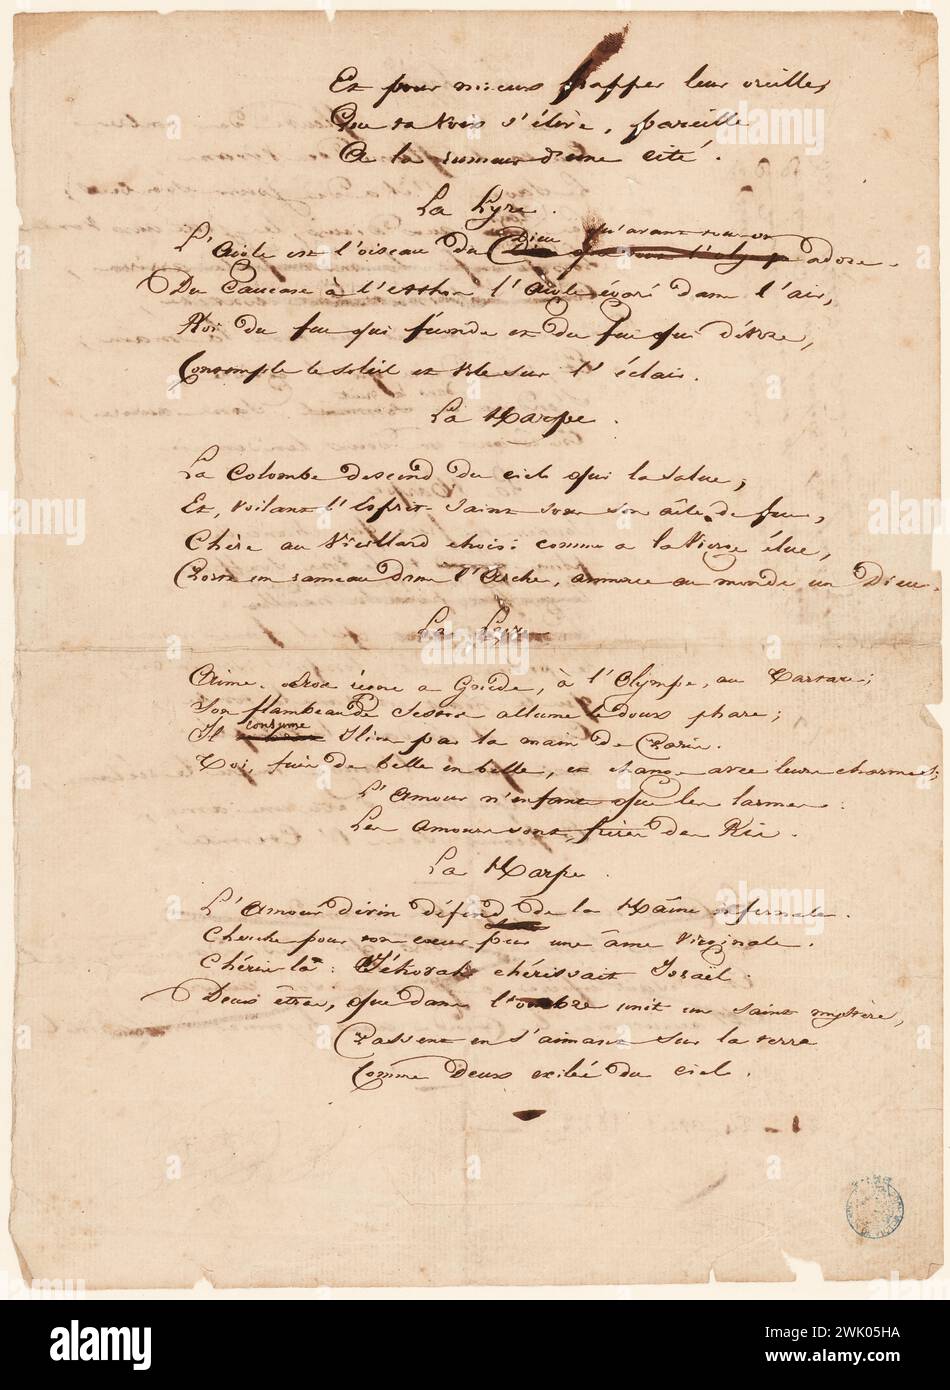 Et pour mieux frapper leur oreille,
Que ta voix s'élève, pareille
A la rumeur d'une cité.
La Lyre.
L'Aigle est l'oiseau du Dieu qu'avant tous on adore.
Du Caucase à l'Athos l'Aigle égaré dans l'air,
Roi du feu qui féconde et du feu qui dévore,
Contemple le soleil et vole sur l'éclair.
La Harpe.
La Colombe descend du ciel qui la salue,
Et, voilant l'Esprit-Saint sous son aîle de feu,
Chère au Vieillard choisi comme à la Vierge élue,
Porte un rameau dans l'Arche, annonce au monde un Dieu.
La Lyre
Aime. Eros règne à Gnide, à l'Olympe, au Tartare;
Son flambeau de Sestos allume le doux phare;
Il consume Ilion par la main de Pâris.
Toi, fuis de belle en belle, et change avec leurs charmes;
L'Amour n'enfante que les larmes:
Les Amours sont frères des Ris.
La Harpe.
L'Amour divin défend de la Haîne infernale.
Cherche pour ton coeur pur une âme virginale.
Chéris-la: Jéhovah chérissait Israël.
Deux êtres, que dans l'ombre unit un saint mystère,
Passent en s'aimant sur la terre
Comme deux exilés du ciel.
alamy
Image ID: 2WK05HA
www.alamy.com